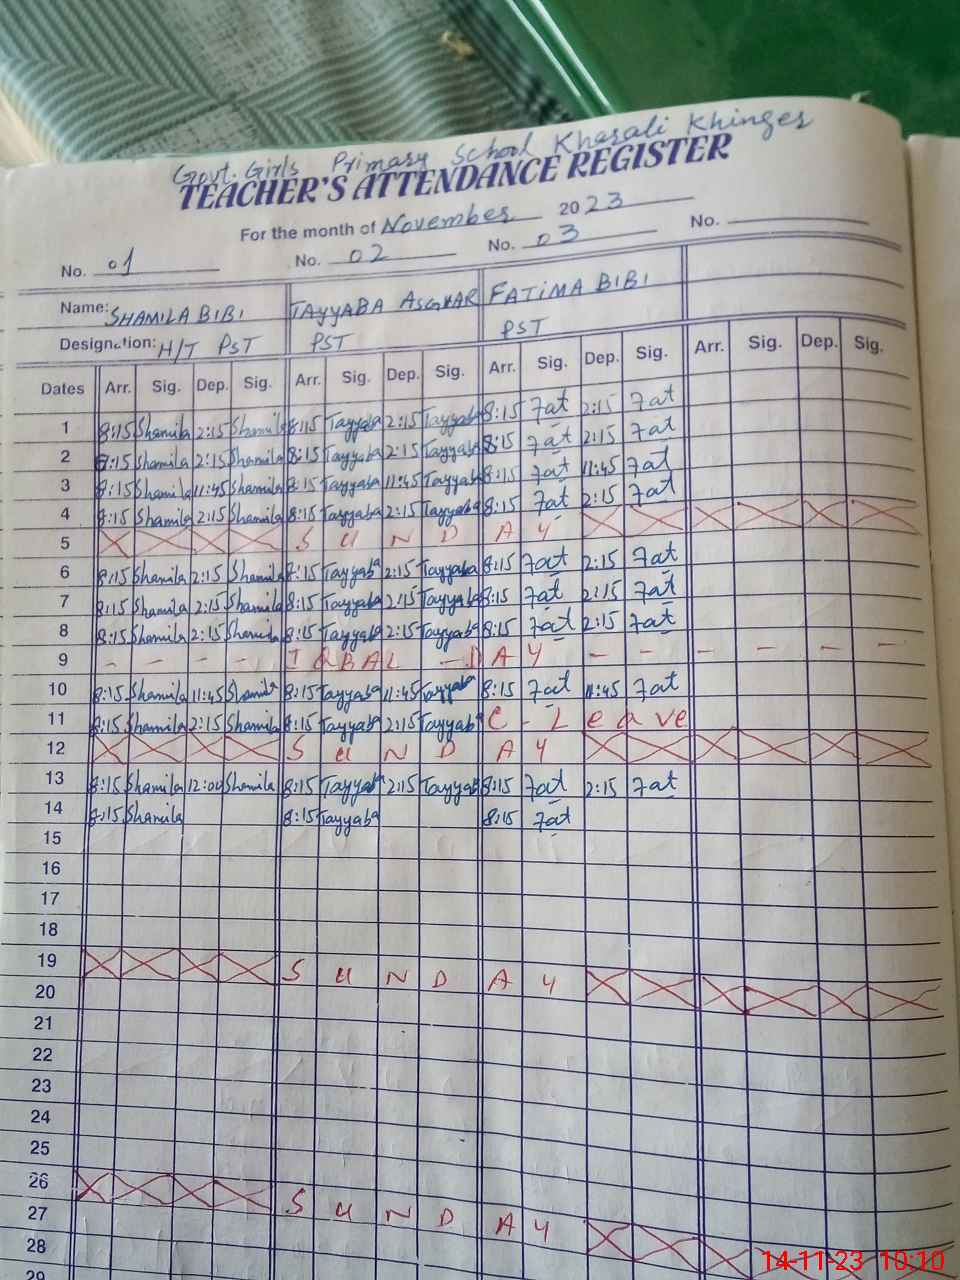 Govt. Girls Primary School Kharali Khinger
TEACHER'S ATTENDANCE REGISTER
For the month of November 2023
No. 01 No. 02 No. 03 No.
Name: SHAMILA BIBI TAYYABA ASGHAR FATIMA BIBI
Designation: H/T PST PST PST
Dates Arr. Sig. Dep. Sig. Arr. Sig. Dep. Sig. Arr. Sig. Dep. Sig. Arr. Sig. Dep. Sig.
1 8:15 Shamila 2:15 Shamila 8:15 Tayyaba 2:15 Tayyaba 8:15 Fat 2:15 Fat
2 8:15 Shamila 2:15 Shamila 8:15 Tayyaba 2:15 Tayyaba 8:15 Fat 2:15 Fat
3 8:15 Shamila 11:45 Shamila 8:15 Tayyaba 11:45 Tayyaba 8:15 Fat 11:45 Fat
4 8:15 Shamila 2:15 Shamila 8:15 Tayyaba 2:15 Tayyaba 8:15 Fat 2:15 Fat
5 SUNDAY
6 8:15 Shamila 2:15 Shamila 8:15 Tayyaba 2:15 Tayyaba 8:15 Fat 2:15 Fat
7 8:15 Shamila 2:15 Shamila 8:15 Tayyaba 2:15 Tayyaba 8:15 Fat 2:15 Fat
8 8:15 Shamila 2:15 Shamila 8:15 Tayyaba 2:15 Tayyaba 8:15 Fat 2:15 Fat
9 - - - - IQBAL - DAY - - - - - -
10 8:15 Shamila 11:45 Shamila 8:15 Tayyaba 11:45 Tayyaba 8:15 Fat 11:45 Fat
11 8:15 Shamila 2:15 Shamila 8:15 Tayyaba 2:15 Tayyaba C - Leave
12 SUNDAY
13 8:15 Shamila 12:00 Shamila 8:15 Tayyaba 2:15 Tayyaba 8:15 Fat 2:15 Fat
14 8:15 Shamila 8:15 Tayyaba 8:15 Fat
15
16
17
18
19 SUNDAY
20
21
22
23
24
25
26 SUNDAY
27
28
29
14-11-23 10:10